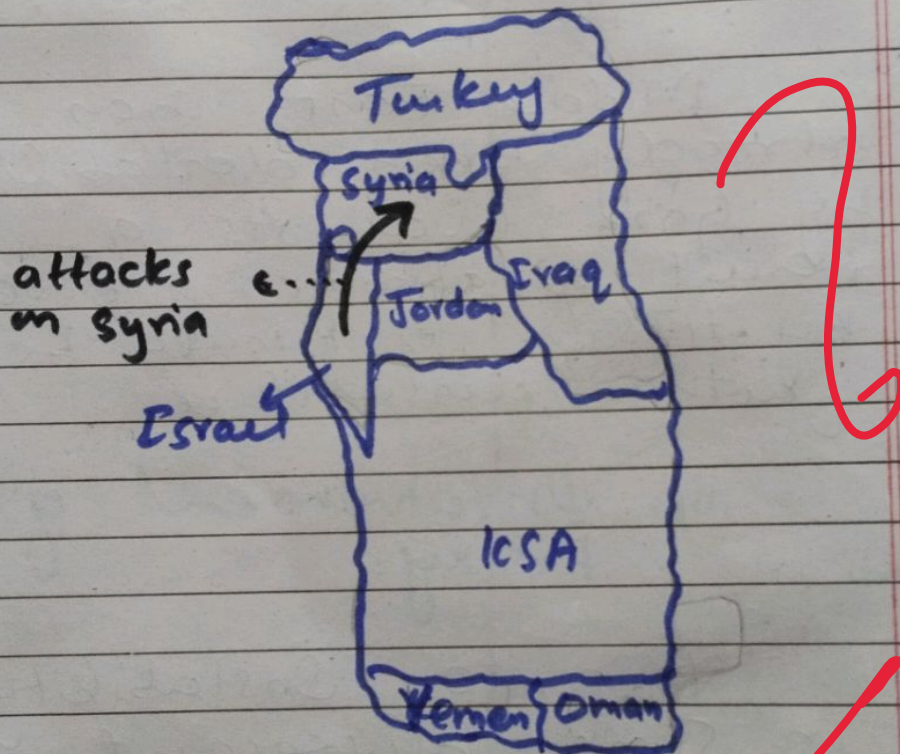 Turkey
Syria
attacks
on Syria
Iraq
Jordan
Israel
KSA
Yemen
Oman